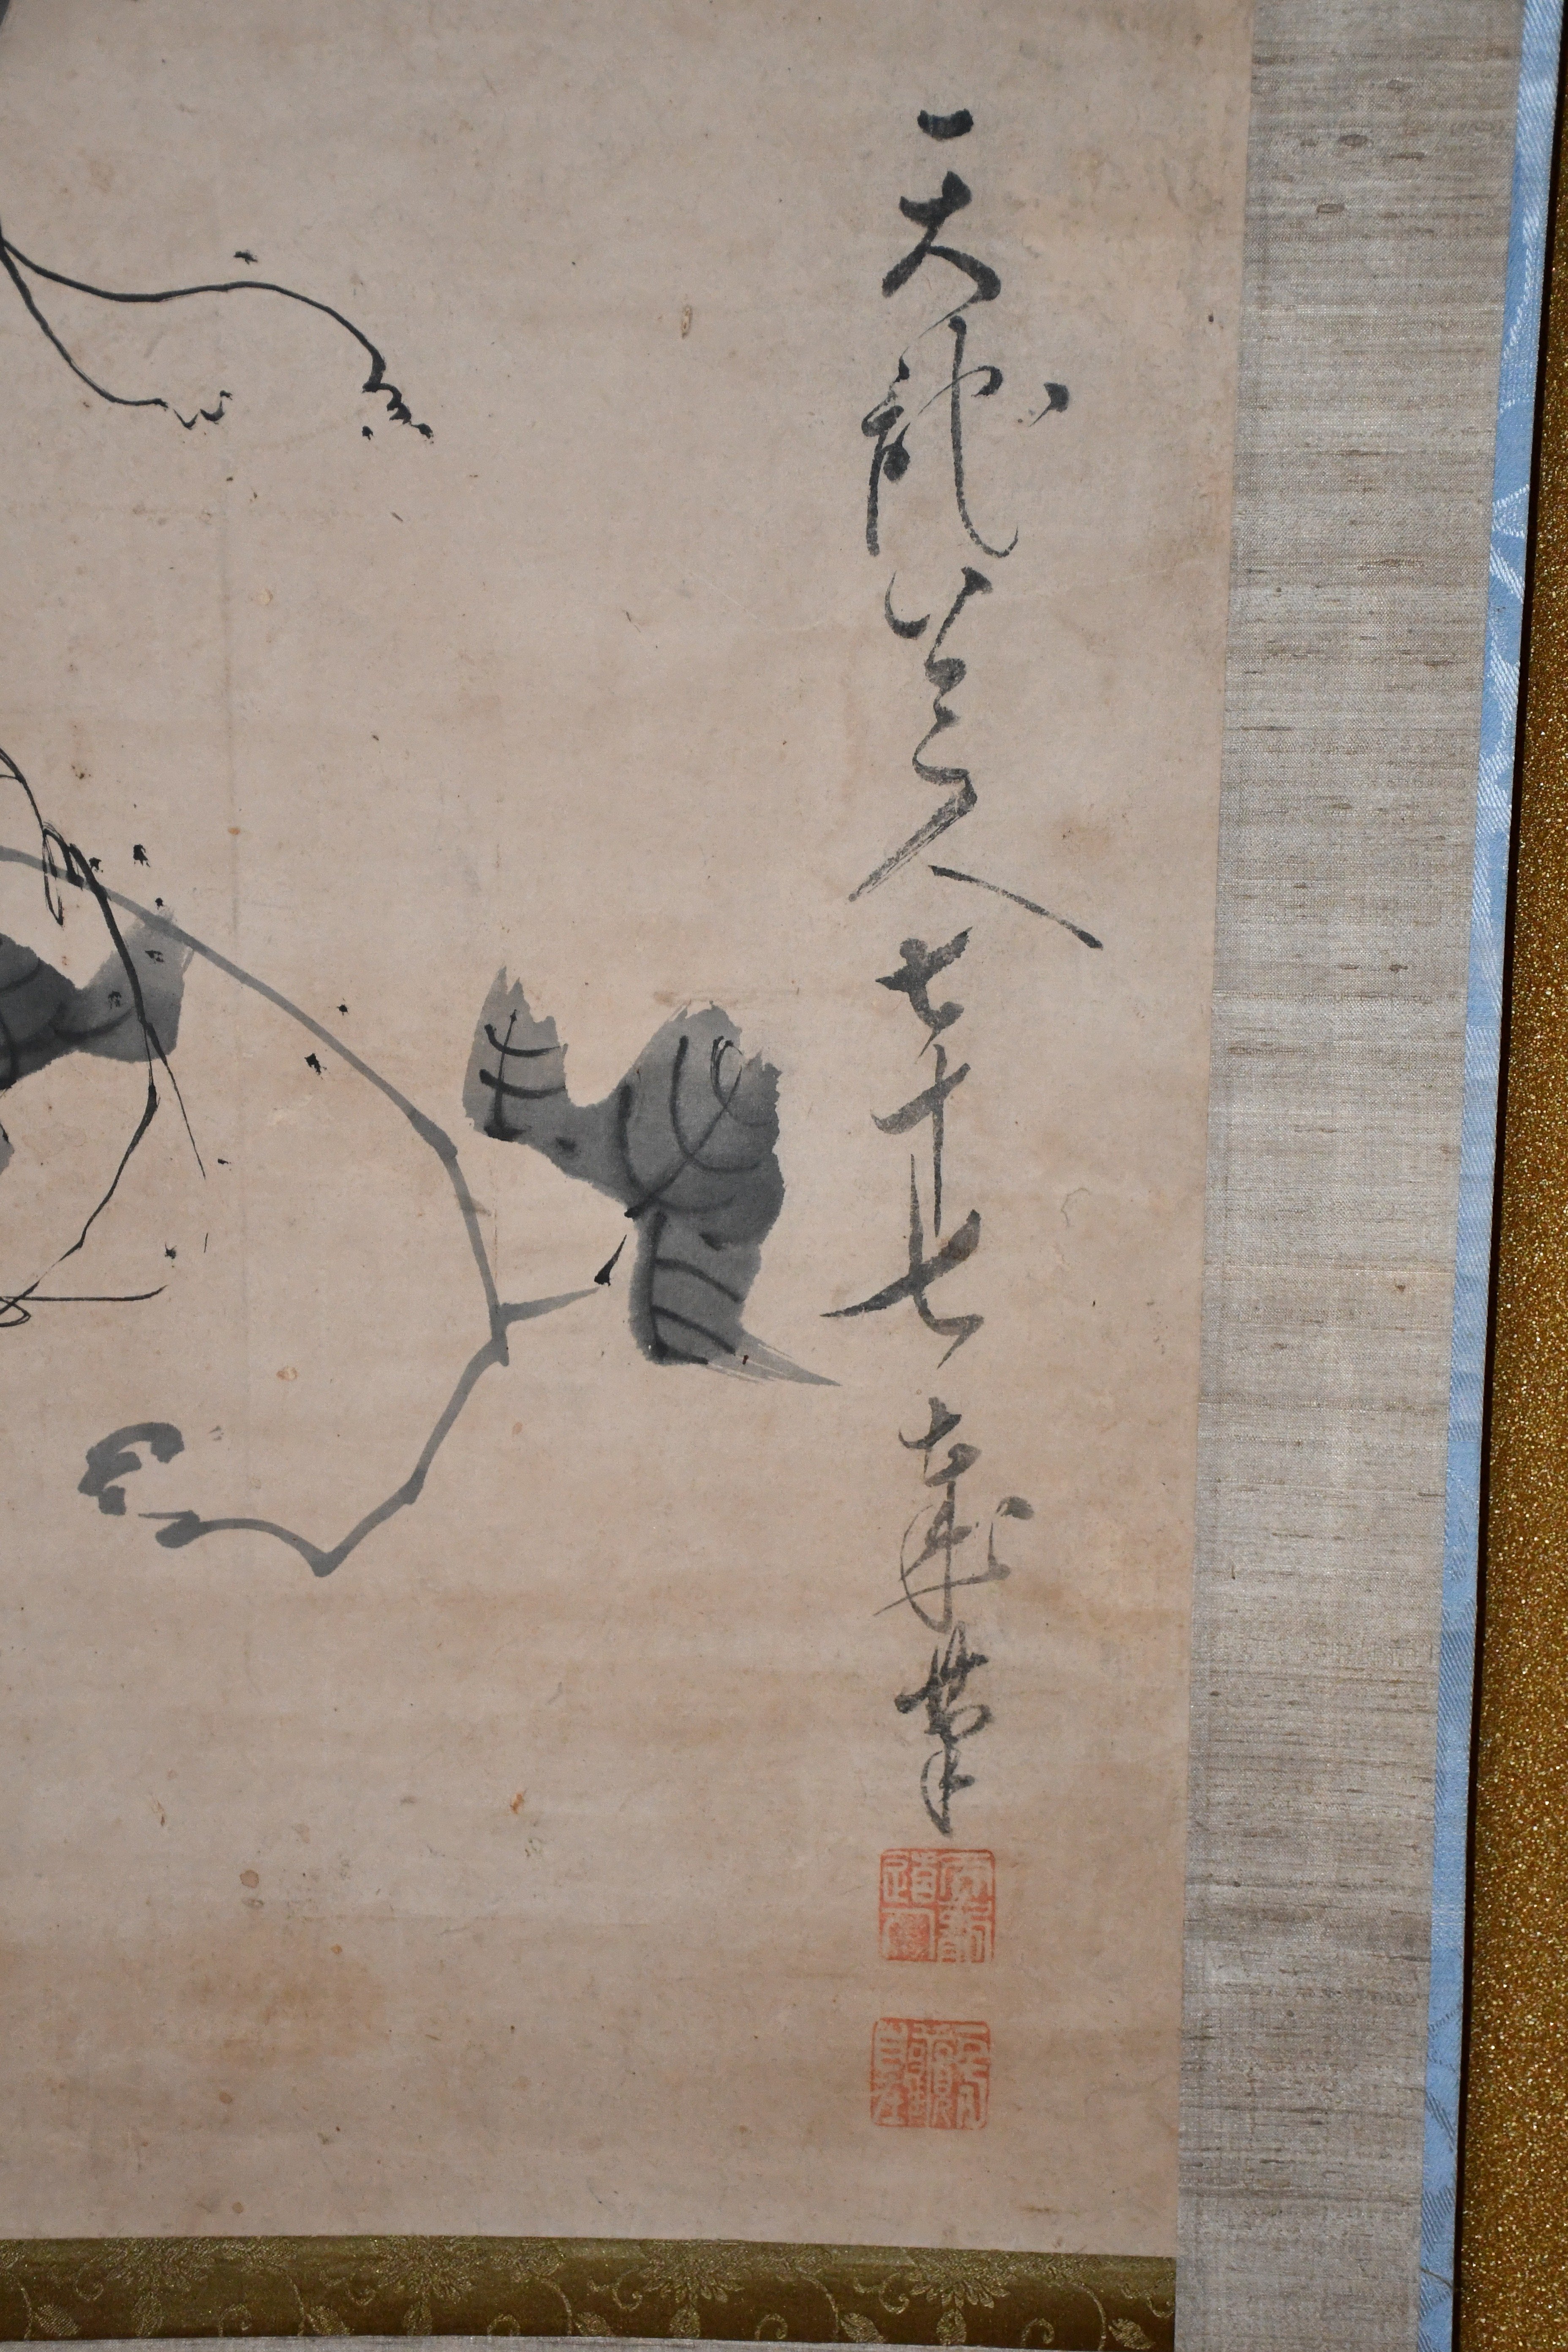 天龍道人七十七歳筆